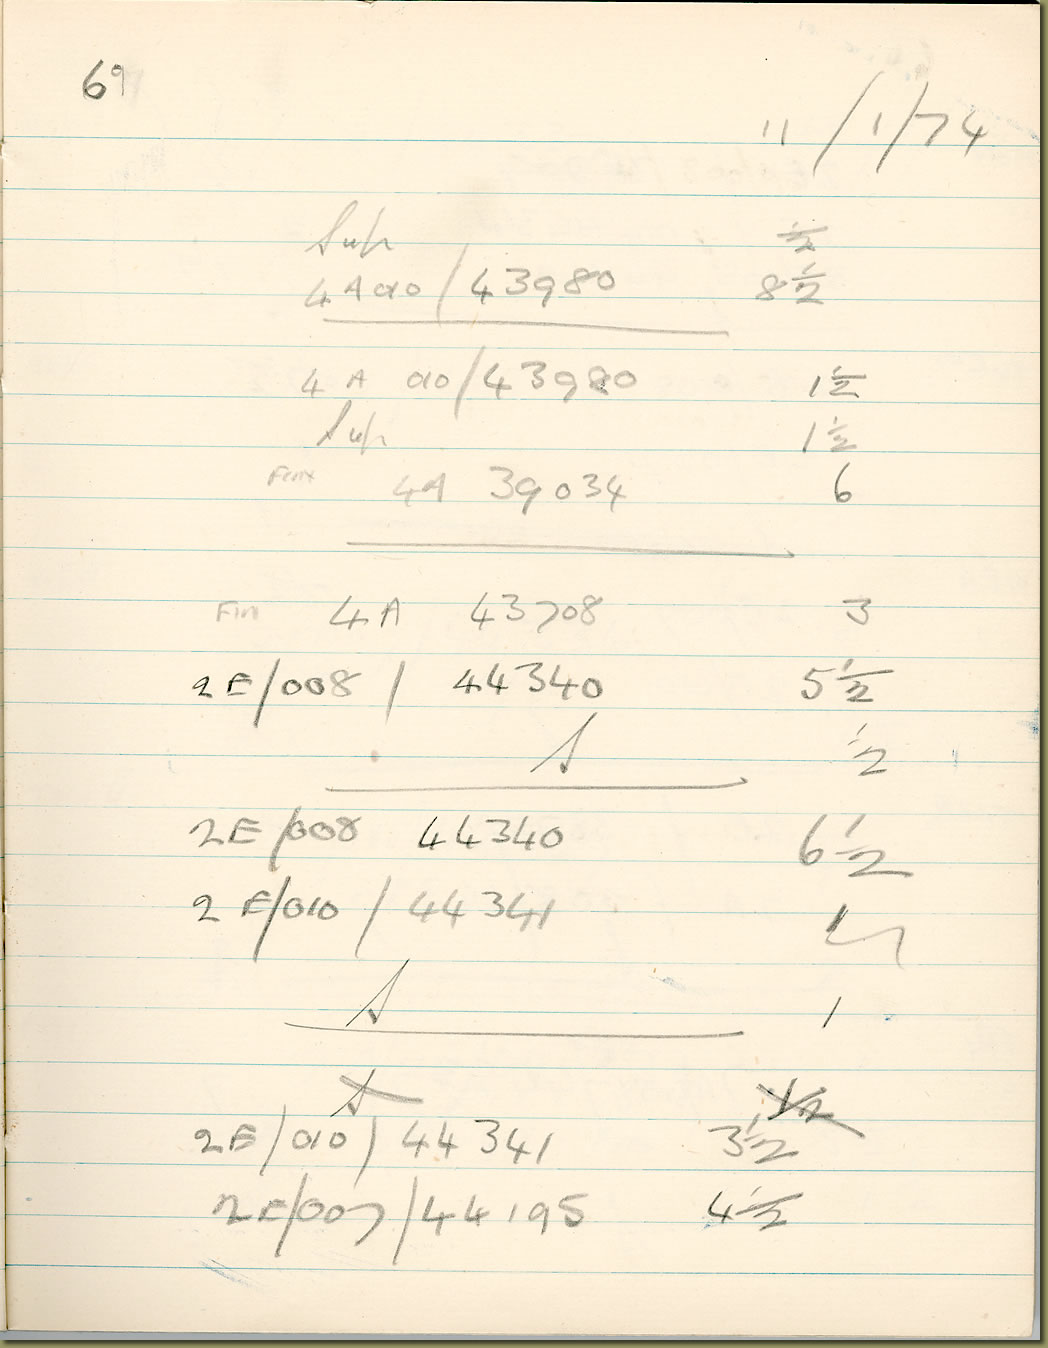 69
11/1/74
Sup ½
4A 010/43980 8½
4A 010/43980 1½
Sup 1½
4A 39034 6
Fin 4A 43708 3
2E/008/44340 5½
S ½
2E/008 44340 6½
2E/010/44341 1
S 1
S ½
2E/010/44341 3½
2E/007/44195 4½